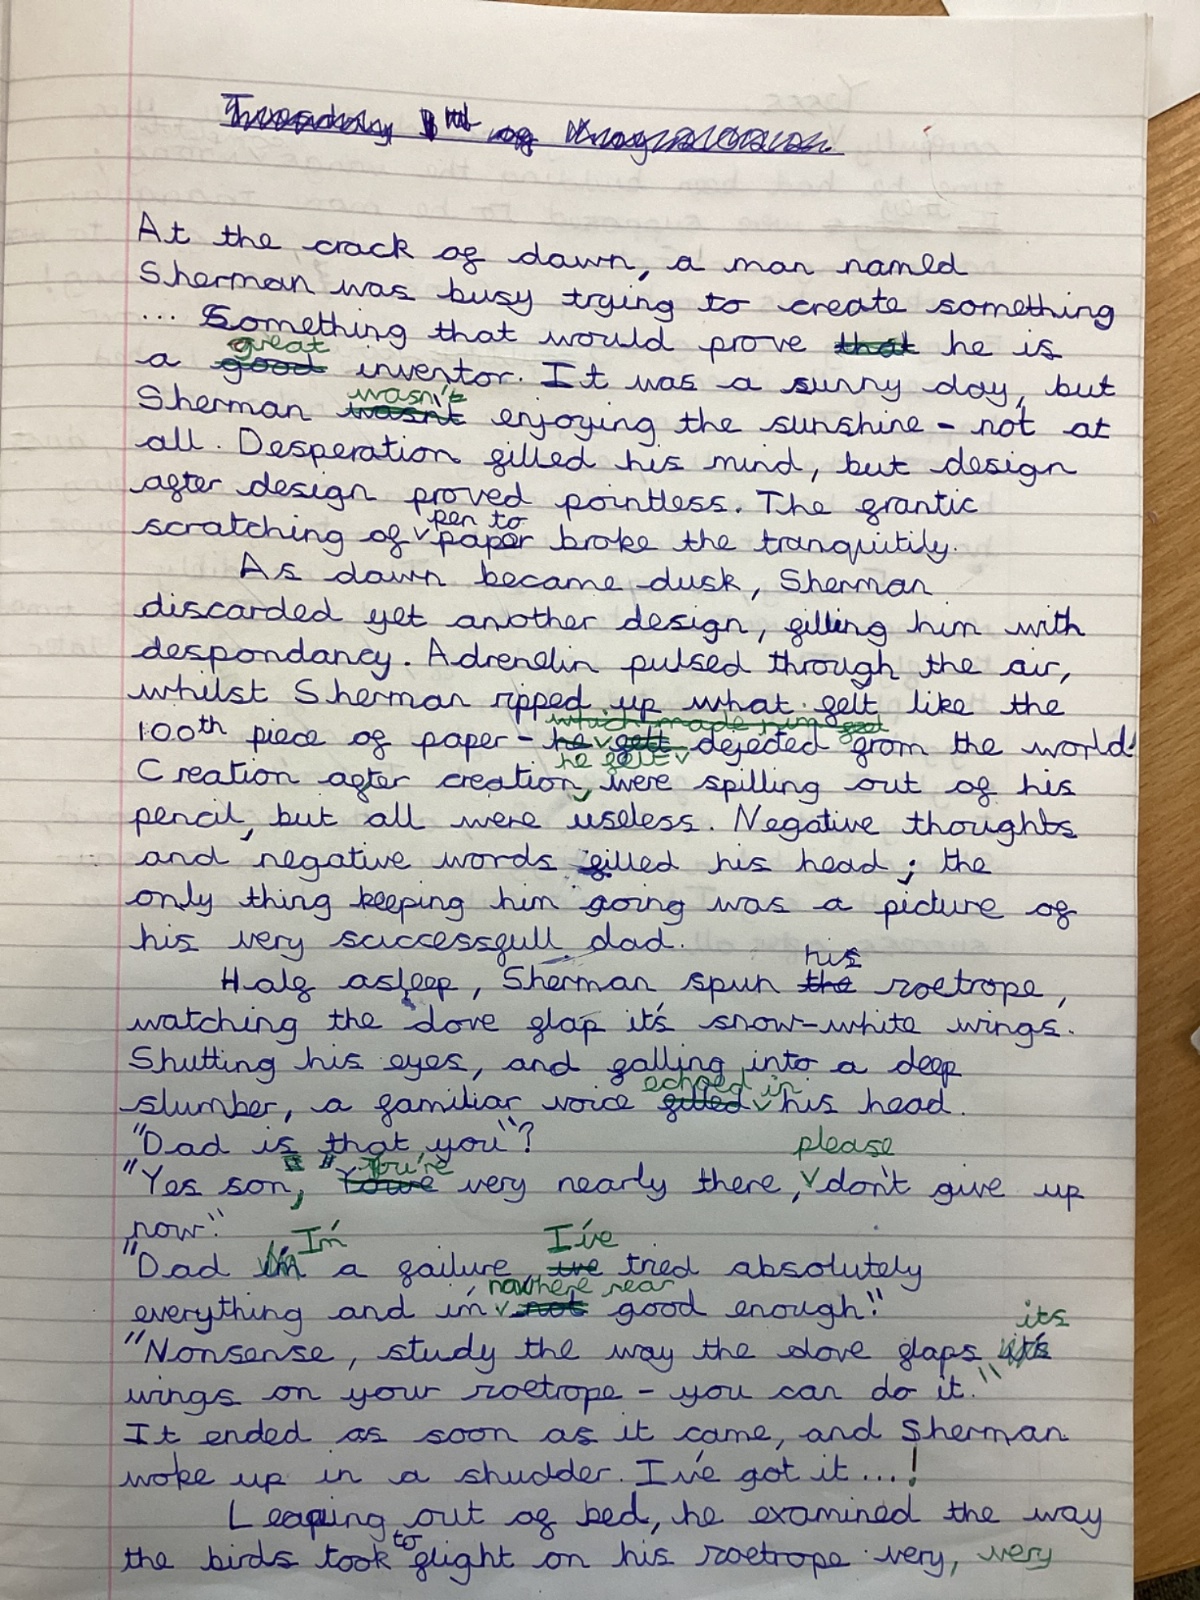 At the crack of dawn, a man named
Sherman was busy trying to create something
... Something that would prove he is
a great inventor. It was a sunny day, but
Sherman wasn't enjoying the sunshine - not at
all. Desperation filled his mind, but design
after design proved pointless. The frantic
scratching of pen to paper broke the tranquitily.
As dawn became dusk, Sherman
discarded yet another design, filling him with
despondancy. Adrenelin pulsed through the air,
whilst Sherman ripped up what felt like the
100th piece of paper - he felt dejected from the world!
Creation after creation, were spilling out of his
pencil, but all were useless. Negative thoughts
and negative words filled his head; the
only thing keeping him going was a picture of
his very successfull dad.
Half asleep, Sherman spun his roetrope,
watching the dove flap it's snow-white wings.
Shutting his eyes, and falling into a deep
slumber, a familiar voice echoed in his head.
"Dad is that you"?
"Yes son, You're very nearly there, please don't give up
now."
"Dad I'm a failure I've tried absolutely
everything and i'm nowhere near good enough."
"Nonsense, study the way the dove flaps its
wings on your roetrope - you can do it."
It ended as soon as it came, and Sherman
woke up in a shudder. I've got it...!
Leaping out of bed, he examined the way
the birds took to flight on his roetrope very, very